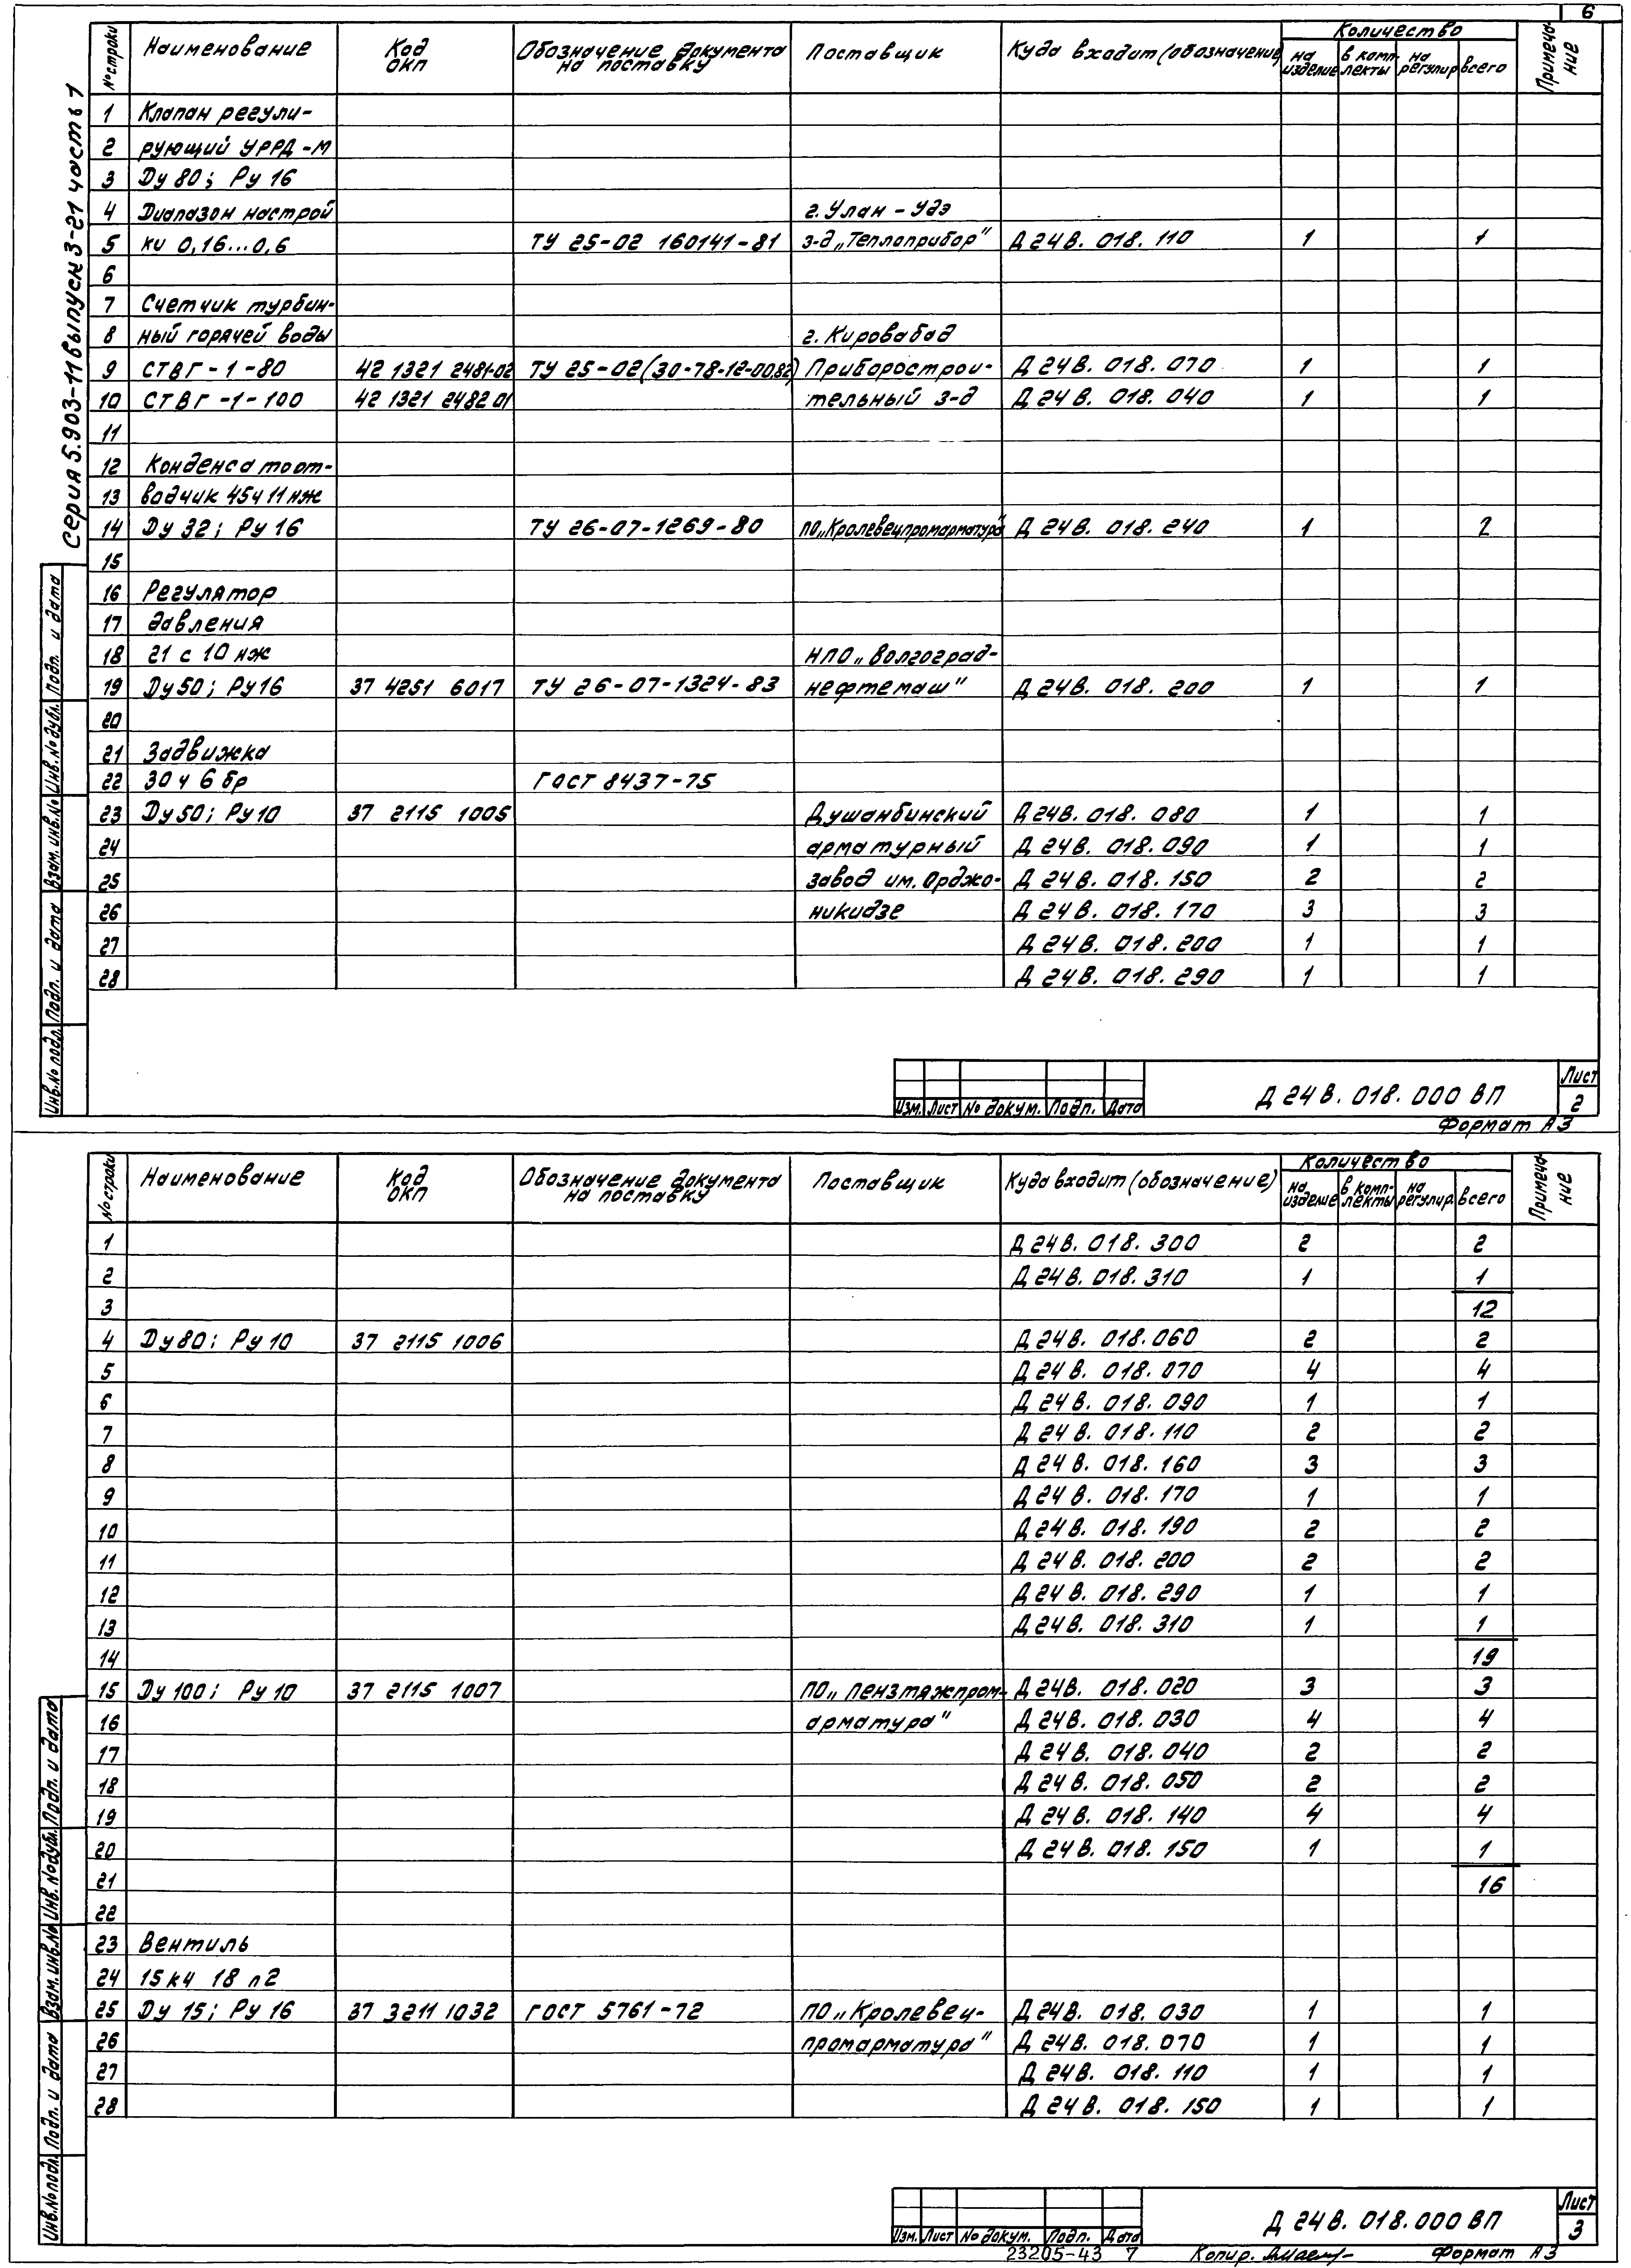 6
Серия 5.903-11 выпуск 3-21 часть 1
№ строки Наименование Код ОКП Обозначение документа на поставку Поставщик Куда входит (обозначение) Количество на изделие в комплекты на регулир всего Примечание
1 Клапан регули-
2 рующий УРРД-М
3 Ду 80; Ру 16
4 Диапазон настрой г. Улан-Удэ
5 ки 0,16...0,6 ТУ 25-02 160141-81 з-д „Теплоприбор" Д 24В. 018. 110 1 1
6
7 Счетчик турбин-
8 ный горячей воды г. Кировабад
9 СТВГ-1-80 42 1321 2481-02 ТУ 25-02(30-78-12-00.82) Приборострои- Д 24В. 018. 070 1 1
10 СТВГ-1-100 42 1321 2482 01 тельный з-д Д 24В. 018. 040 1 1
11
12 Конденсатоот-
13 водчик 45ч 11 нж
14 Ду 32; Ру 16 ТУ 26-07-1269-80 ПО„Кролевецпромарматура" Д 24В. 018. 240 1 2
15
16 Регулятор
17 давления
18 21 с 10 нж НПО „Волгоград-
19 Ду 50; Ру 16 37 4251 6017 ТУ 26-07-1324-83 нефтемаш" Д 24В. 018. 200 1 1
20
21 Задвижка
22 30 ч 6 бр ГОСТ 8437-75
23 Ду 50; Ру 10 37 2115 1005 Душанбинский Д 24В. 018. 080 1 1
24 арматурный Д 24В. 018. 090 1 1
25 завод им. Орджо- Д 24В. 018. 150 2 2
26 никидзе Д 24В. 018. 170 3 3
27 Д 24В. 018. 200 1 1
28 Д 24В. 018. 290 1 1
Инв.№ подл. Подп. и дата Взам. инв.№ Инв.№ дубл. Подп. и дата
Изм. Лист № докум. Подп. Дата Д 24В. 018. 000 ВП Лист 2
Формат А3
№ строки Наименование Код ОКП Обозначение документа на поставку Поставщик Куда входит (обозначение) Количество на изделие в комплекты на регулир. всего Примечание
1 Д 24В. 018. 300 2 2
2 Д 24В. 018. 310 1 1
3 12
4 Ду 80; Ру 10 37 2115 1006 Д 24В. 018. 060 2 2
5 Д 24В. 018. 070 4 4
6 Д 24В. 018. 090 1 1
7 Д 24В. 018. 110 2 2
8 Д 24В. 018. 160 3 3
9 Д 24В. 018. 170 1 1
10 Д 24В. 018. 190 2 2
11 Д 24В. 018. 200 2 2
12 Д 24В. 018. 290 1 1
13 Д 24В. 018. 310 1 1
14 19
15 Ду 100; Ру 10 37 2115 1007 ПО „Пензтяжпром- Д 24В. 018. 020 3 3
16 арматура" Д 24В. 018. 030 4 4
17 Д 24В. 018. 040 2 2
18 Д 24В. 018. 050 2 2
19 Д 24В. 018. 140 4 4
20 Д 24В. 018. 150 1 1
21 16
22
23 Вентиль
24 15кч 18 п2
25 Ду 15; Ру 16 37 3211 1032 ГОСТ 5761-72 ПО „Кролевец- Д 24В. 018. 030 1 1
26 промарматура" Д 24В. 018. 070 1 1
27 Д 24В. 018. 110 1 1
28 Д 24В. 018. 150 1 1
Инв.№ подл. Подп. и дата Взам. инв.№ Инв. № дубл. Подп. и дата
Изм. Лист № докум. Подп. Дата Д 24В. 018. 000 ВП Лист 3
23205-43 7 Копир. Формат А3